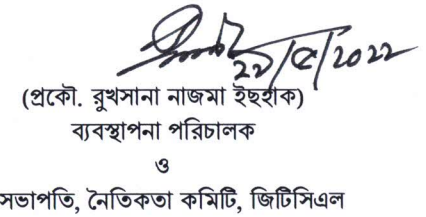 ২২/৫/২০২২
(প্রকৌ. রুখসানা নাজমা ইছহাক)
ব্যবস্থাপনা পরিচালক
ও
সভাপতি, নৈতিকতা কমিটি, জিটিসিএল